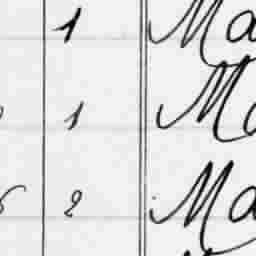 1 Ma
1 Ma
2 Ma